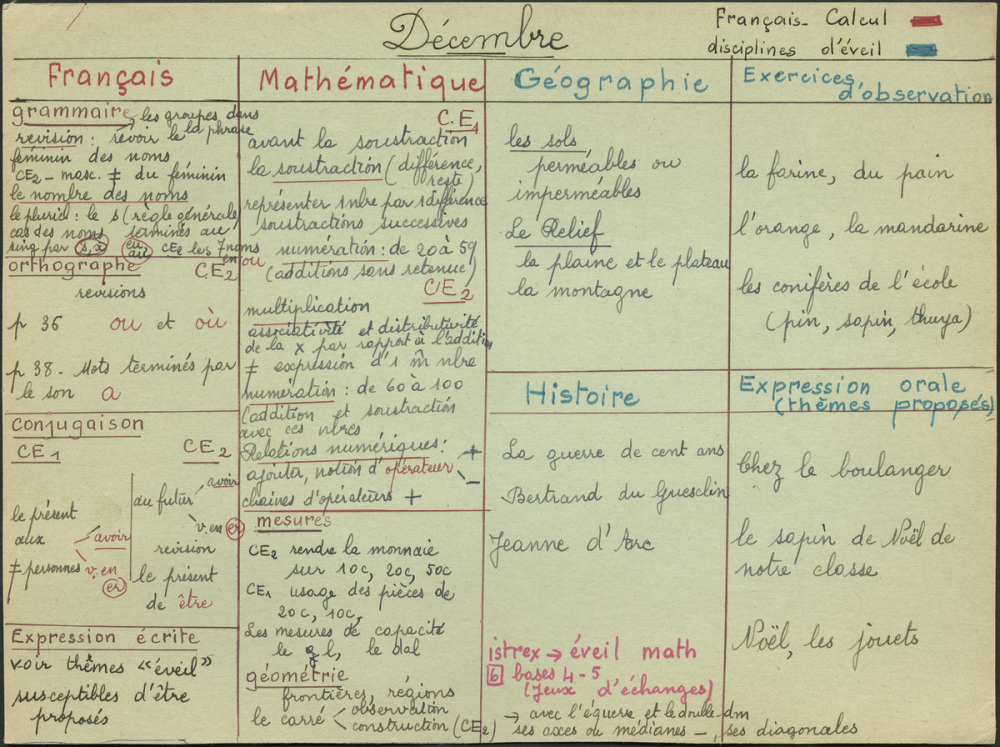 Décembre
Français - Calcul
disciplines d'éveil
Français
grammaire → les groupes dans
la phrase
revision : revoir le
féminin des noms
CE2 - masc. ≠ du féminin
le nombre des noms
le pluriel : le s (règle générale)
cas des noms terminés au
sing par s, x eu au CE2 les 7 noms
en ou
orthographe CE2
revisions
p 36 ou et où
p 38 - Mots terminés par
le son a
conjugaison
CE1 CE2
le présent
aux
≠ personnes
avoir
v. en
er
au futur
avoir
v. en er
revision
le présent
de être
Expression écrite
voir thèmes « éveil »
susceptibles d'être
proposés
Mathématique
CE1
avant la soustraction
la soustraction (différence,
reste)
représenter 1 nbre par 1 différence
soustractions successives
numération : de 20 à 59
(additions sans retenue)
CE2
multiplication
associativité et distributivité
de la x par rapport à l'addition
≠ expression d'1 m̂ nbre
numération : de 60 à 100
(addition et soustraction
avec ces nbres
Relations numériques :
ajouter, notion d'opérateur + -
chaines d'opérateurs +
mesures
CE2 rendre la monnaie
sur 10c, 20c, 50c
CE1 usage des pièces de
20c, 10c,
Les mesures de capacité
le l, le dal
géométrie
frontières, régions
le carré < observation
construction (CE2)
→ avec l'équerre et le double-dm
ses axes ou médianes -, ses diagonales
Géographie
les sols
perméables ou
imperméables
Le Relief
la plaine et le plateau
la montagne
Histoire
La guerre de cent ans
Bertrand du Guesclin
Jeanne d'Arc
istrex → éveil math
6 bases 4 - 5
(Jeux d'échanges)
Exercices
d'observation
la farine, du pain
l'orange, la mandarine
les conifères de l'école
(pin, sapin, thuya)
Expression orale
(thèmes proposés)
Chez le boulanger
le sapin de Noël de
notre classe
Noël, les jouets